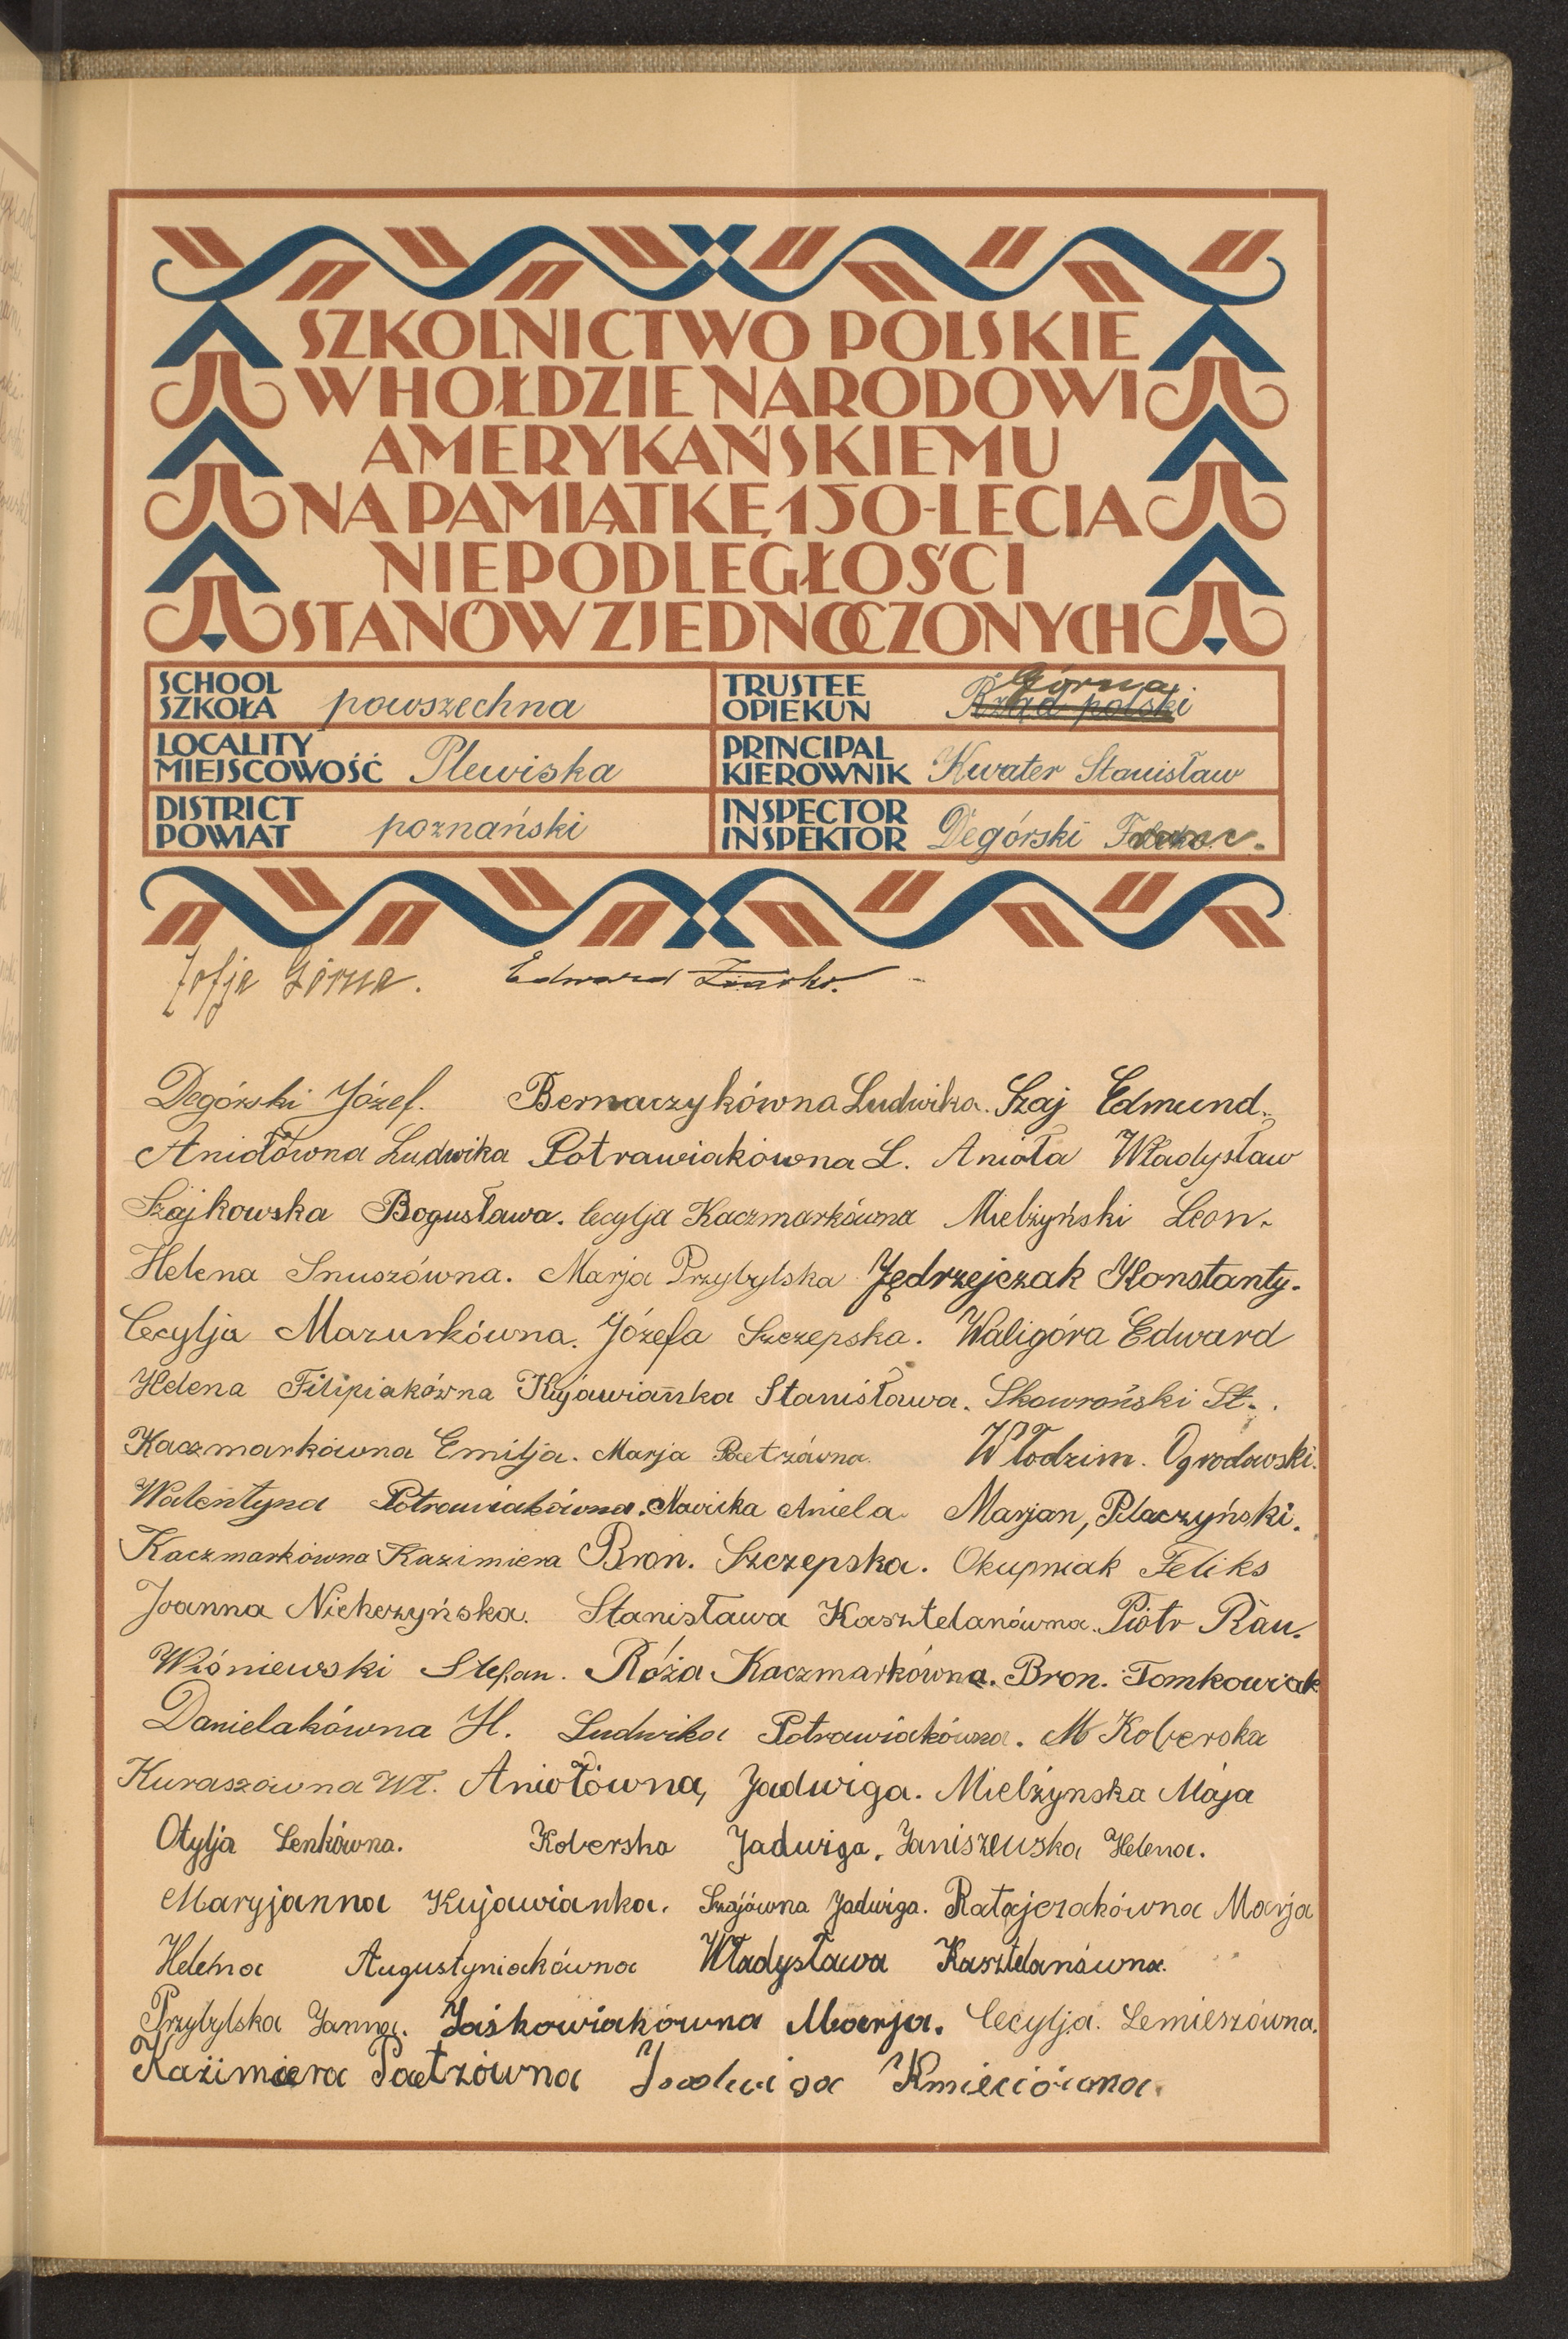 SZKOLNICTWO POLSKIE
W HOŁDZIE NARODOWI
AMERYKAŃSKIEMU
NA PAMIĄTKĘ 150-LECIA
NIEPODLEGŁOŚCI
STANÓW ZJEDNOCZONYCH
SCHOOL
SZKOŁA powszechna
TRUSTEE
OPIEKUN Rząd polski Górna
LOCALITY
MIEJSCOWOŚĆ Plewiska
PRINCIPAL
KIEROWNIK Kwater Stanisław
DISTRICT
POWIAT poznański
INSPECTOR
INSPEKTOR Degórski
Zofja Górna. Edward
Degórski Józef. Bernaczykówna Ludwika. Szaj Edmund.
Aniołówna Ludwika Potrawiakówna L. Anioła Władysław
Szajkowska Bogusława. Cecylja Kaczmarkówna Mielżyński Leon.
Helena Snuszówna. Marja Przybylska Jędrzejczak Konstanty.
Cecylja Mazurkówna. Józefa Szczepska. Waligóra Edward
Helena Filipiakówna Kujawianka Stanisława. Skowroński St.
Kaczmarkówna Emilja. Marja Paetzówna. Włodzim. Ogrodowski.
Walentyna Potrawiakówna. Nawicka Aniela Marjan, Placzyński.
Kaczmarkówna Kazimiera Bron. Szczepska. Okupniak Feliks
Joanna Niekczyńska. Stanisława Kasztelanówna. Piotr Rau.
Wiśniewski Stefan. Róża Kaczmarkówna. Bron. Tomkowiak
Danielakówna H. Ludwika Potrawiakówna. M Koberska
Kuraszówna Wł. Aniołówna, Jadwiga. Mielżynska Maja
Otylja Lenkówna. Koberska Jadwiga. Janiszewska Helena.
Maryjanna Kujawianka. Szajówna Jadwiga. Ratajczakówna Marja
Helena Augustyniakówna Władysława Kasztelanówna.
Przybylska Janna. Jaśkowiakówna Marja. Cecylja. Lemieszówna.
Kazimiera Paetzówna Jadwiga Kmieciówna.